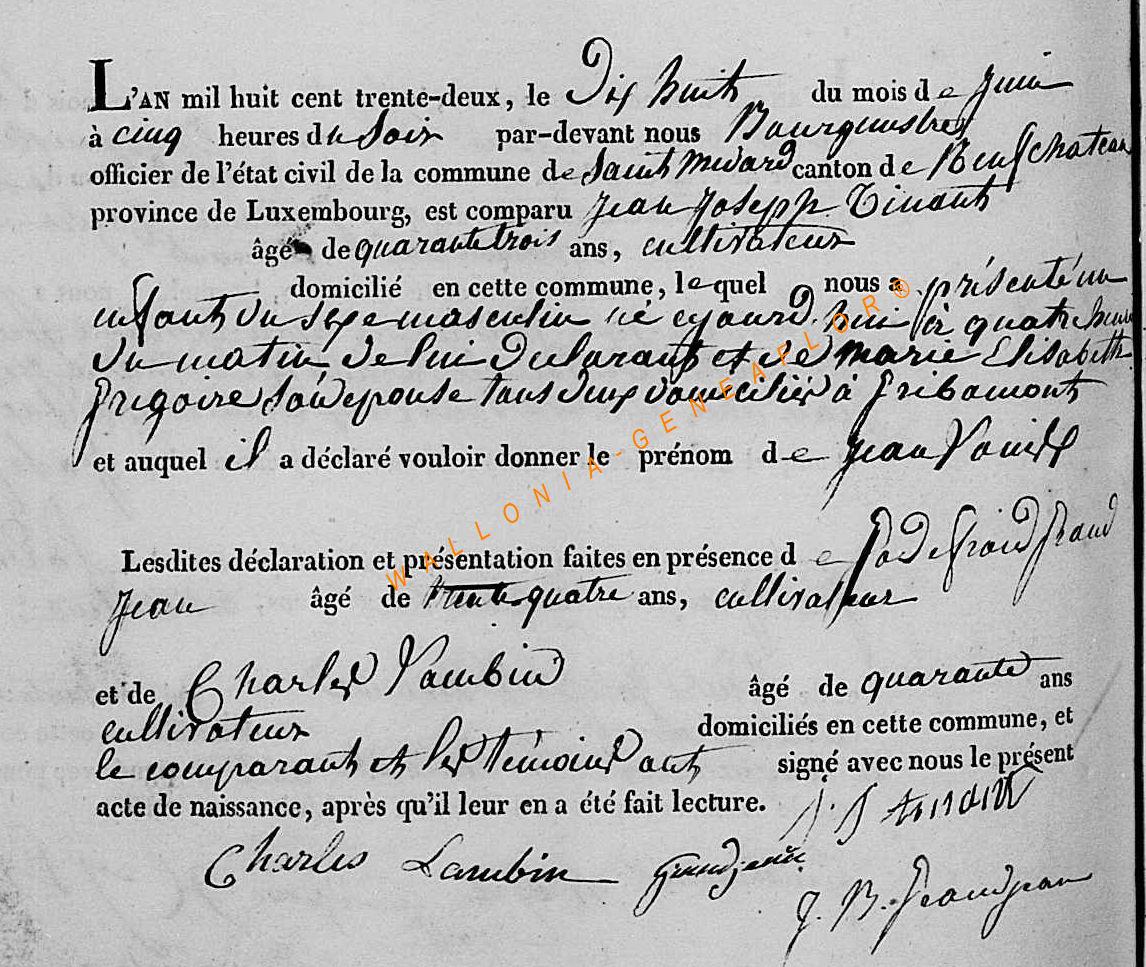 L'AN mil huit cent trente-deux, le Dix huit du mois de juin
à cinq heures du Soir par-devant nous Bourguestre
officier de l'état civil de la commune de Saint Medard canton de Neufchateau
province de Luxembourg, est comparu jean Joseph Tinant
âgé de quarante trois ans, cultivateur
domicilié en cette commune, lequel nous a présenté un
enfant du sexe masculin né cejourd'hui à quatre heure
du matin de lui Declarant et de marie Elisabeth
grigoire son epouse tous deux domiciliés à gribomont
et auquel il a déclaré vouloir donner le prénom de jean Louis
Lesdites déclaration et présentation faites en présence de grand
jean âgé de trente quatre ans, cultivateur
et de Charles Lambin âgé de quarante ans
cultivateur domiciliés en cette commune, et
le comparant et les témoins ont signé avec nous le présent
acte de naissance, après qu'il leur en a été fait lecture.
Charles Lambin grandjean
J. B. Grandjean
WALLONIA-GENEAPLOR®